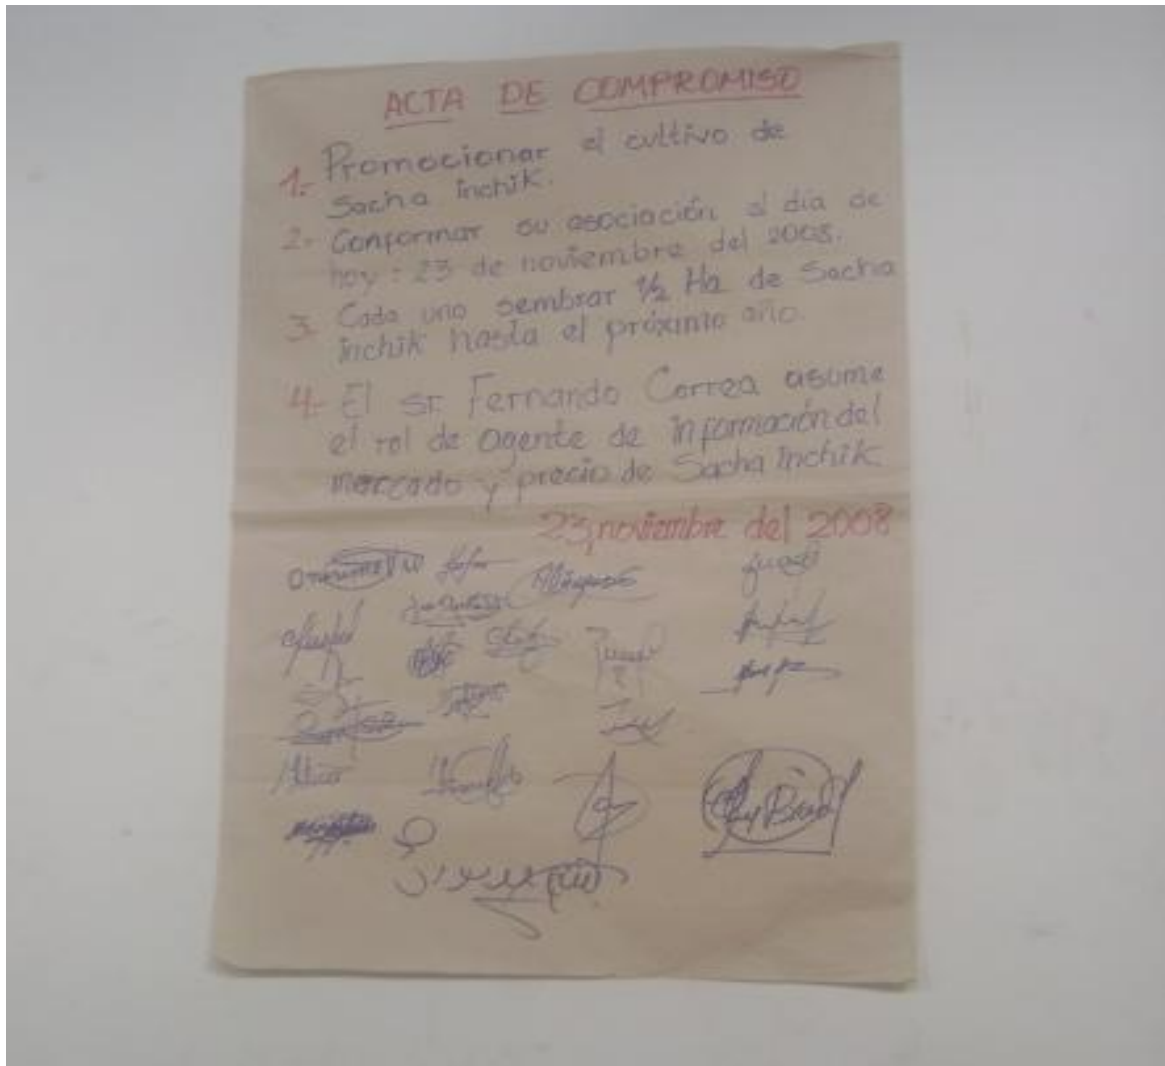 ACTA DE COMPROMISO
1.- Promocionar el cultivo de
Sacha inchik.
2.- Conformar su asociación el día de
hoy : 23 de noviembre del 2008.
3. Cada uno sembrar 1/2 Ha de Sacha
inchik hasta el próximo año.
4.- El sr. Fernando Correa asume
el rol de agente de información del
mercado y precio de Sacha Inchik
23, noviembre del 2008